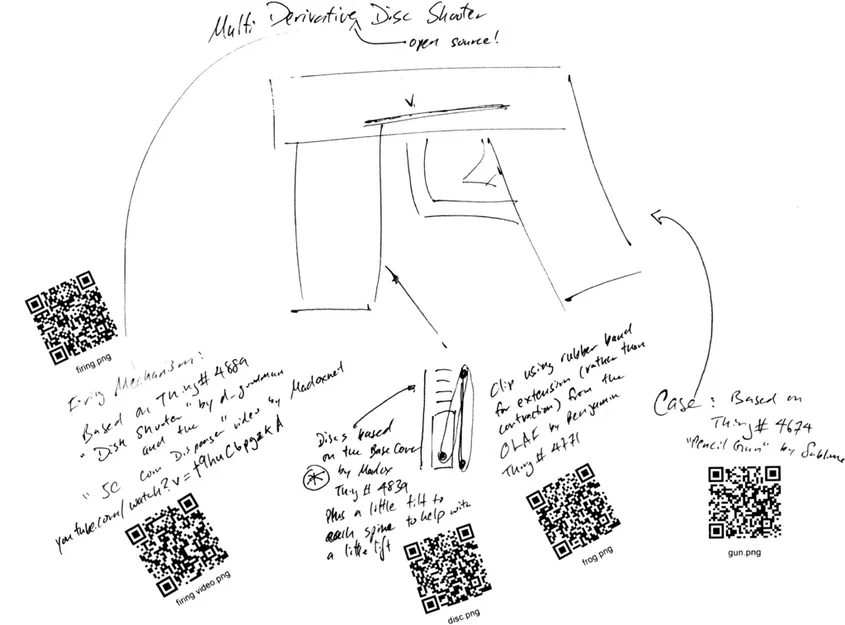 Multi Derivative Disc Shooter
open source!
V
firing.png
Firing Mechanism:
Based on Thing # 4889
"Disk Shooter" by d_goodman
and the
"5C Coin Dispenser" video by Madoxnet
youtube.com/watch?v=
firing video.png
Discs based
on the Base Cover
by Madox
Thing # 4839
Plus a little tilt to
each spine to help with
a little lift
disc.png
Clip using rubber band
for extension (rather than
contraction) from the
OLAF by Benjamin
Thing # 4771
frog.png
Case: Based on
Thing # 4674
"Pencil Gun" by Sublime
gun.png